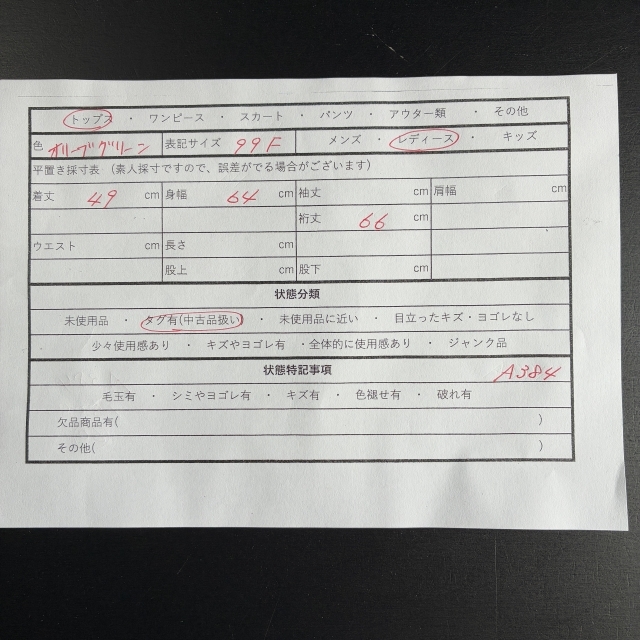 トップス ・ ワンピース ・ スカート ・ パンツ ・ アウター類 ・ その他
色 オリーブグリーン 表記サイズ 99F メンズ ・ レディース ・ キッズ
平置き採寸表 (素人採寸ですので、誤差がでる場合がございます)
着丈 49 cm 身幅 64 cm 袖丈 cm 肩幅 cm
裄丈 66 cm
ウエスト cm 長さ cm
股上 cm 股下 cm
状態分類
未使用品 ・ タグ有(中古品扱い) ・ 未使用品に近い ・ 目立ったキズ・ヨゴレなし
少々使用感あり ・ キズやヨゴレ有 ・全体的に使用感あり ・ ジャンク品
状態特記事項 A384
毛玉有 ・ シミやヨゴレ有 ・ キズ有 ・ 色褪せ有 ・ 破れ有
欠品商品有( )
その他( )